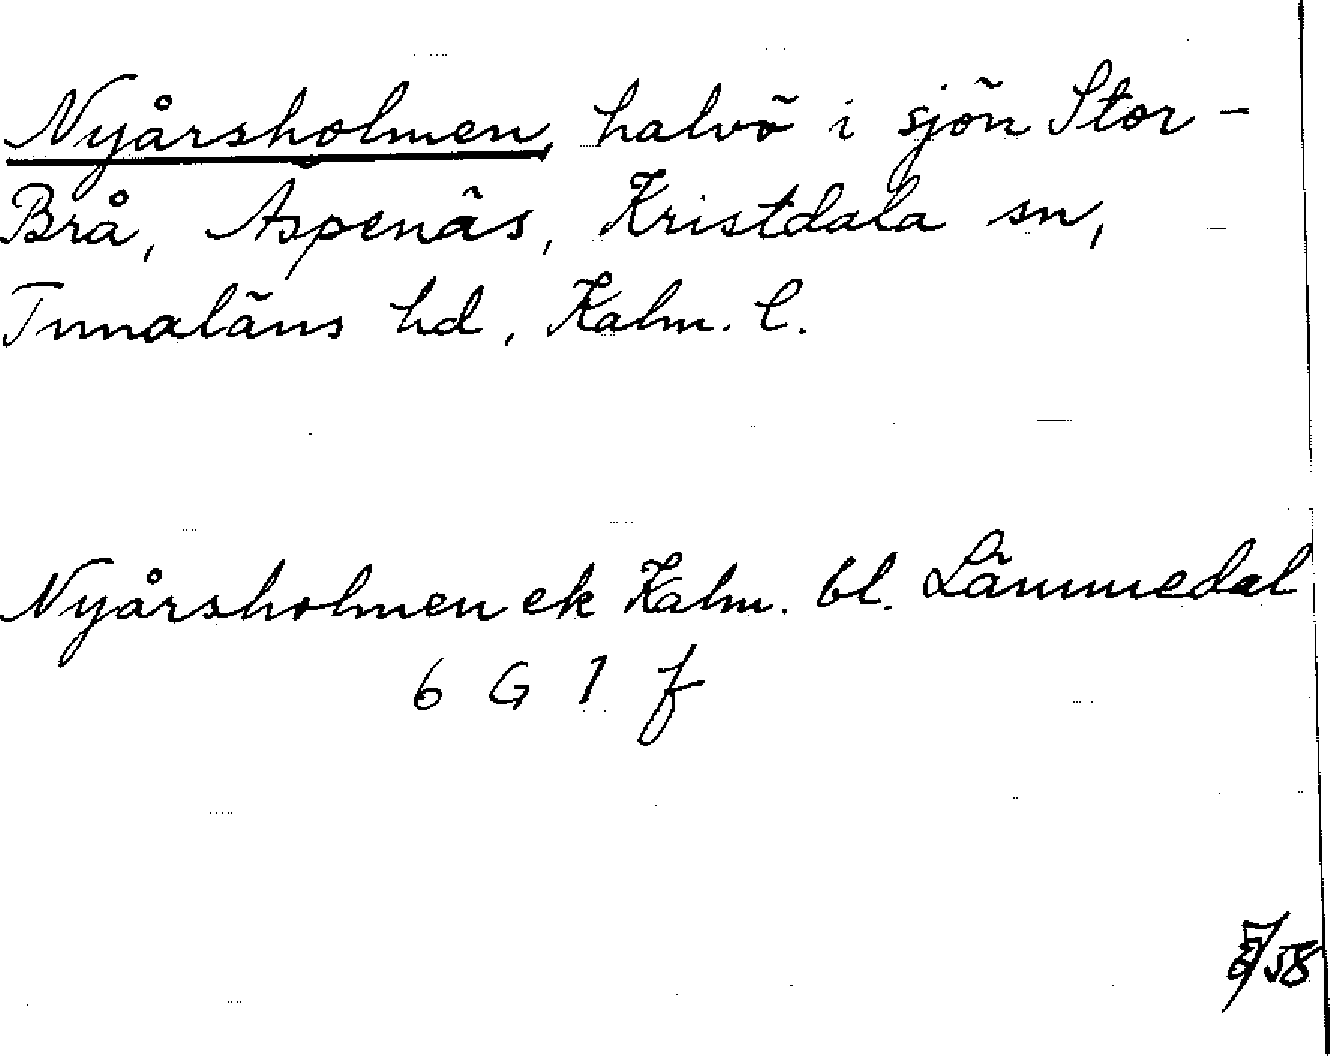 Nyårsholmen, halvö i sjön Stor-
Brå, Aspenäs, Kristdala sn,
Tunaläns hd, Kalm. l.
Nyårsholmen ek Kalm. bl. Lämmedal
6 G 1 f
/58